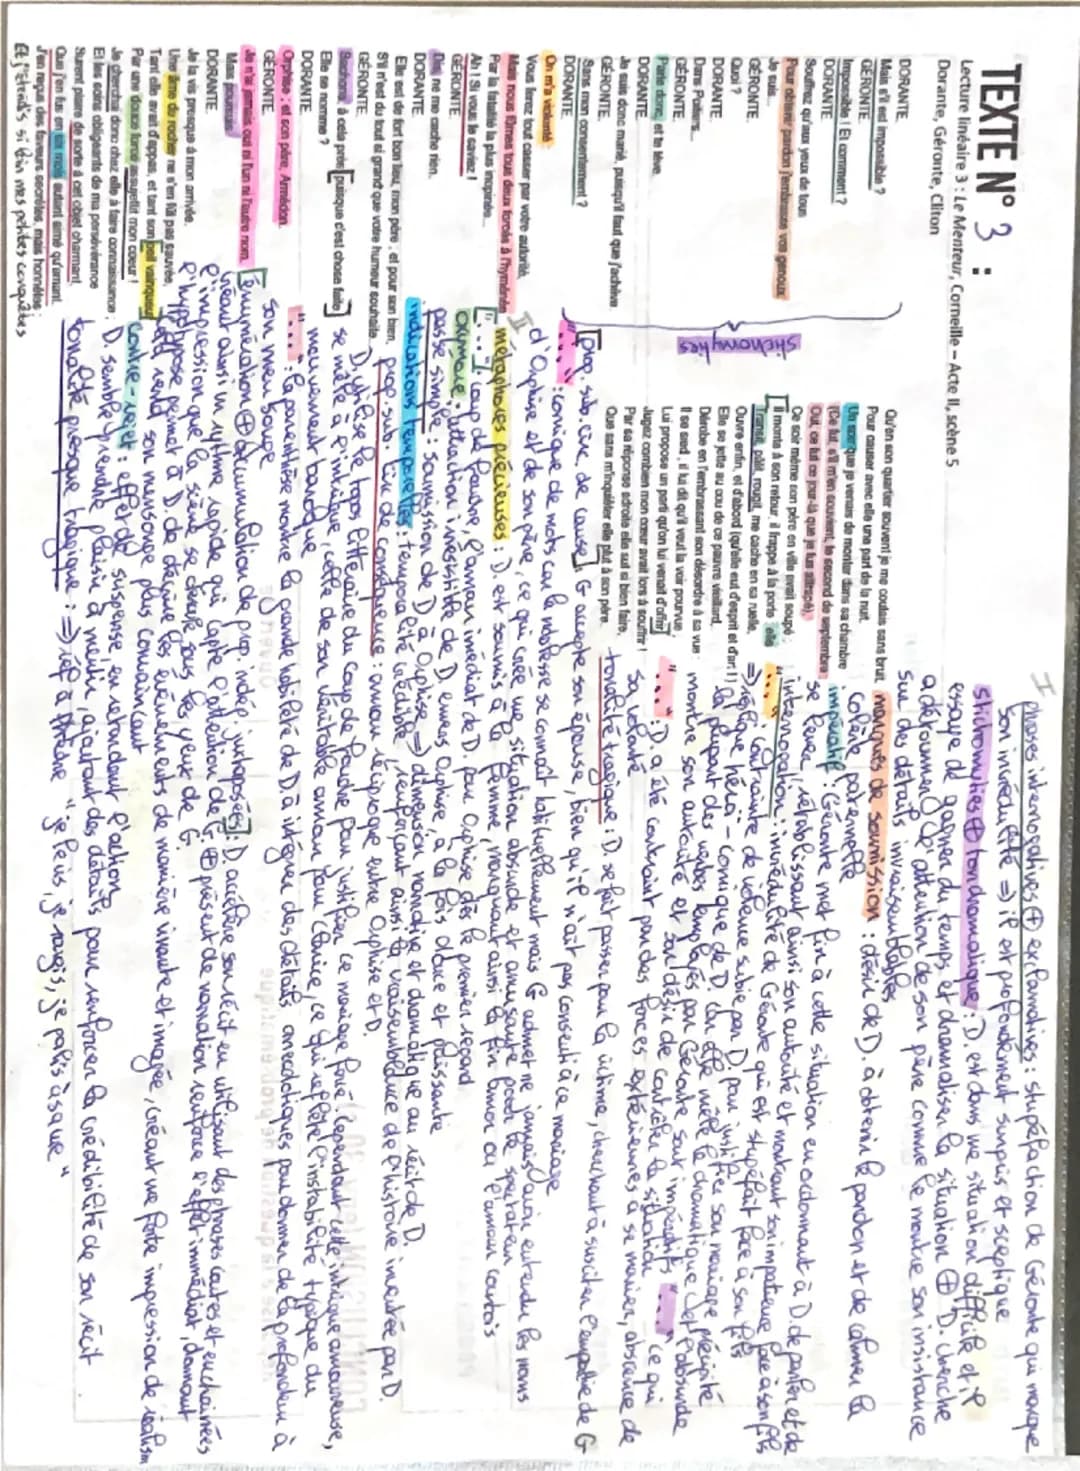 TEXTE N° 3 :
Lecture linéaire 3 : Le Menteur, Corneille – Acte II, scène 5
Dorante, Géronte, Cliton
DORANTE.
Mais s'il est impossible ?
GÉRONTE.
Impossible ! Et comment ?
DORANTE.
Souffrez qu'aux yeux de tous
Pour obtenir pardon j'embrasse vos genoux.
Je suis...
GÉRONTE.
Quoi ?
DORANTE.
Dans Poitiers...
GÉRONTE.
Parle donc, et te lève.
DORANTE.
Je suis donc marié, puisqu'il faut que j'achève.
GÉRONTE.
Sans mon consentement ?
DORANTE.
On m'a violenté
Vous ferez tout casser par votre autorité,
Mais nous fûmes tous deux forcés à l'hyménée
Par la fatalité la plus inopinée...
Ah ! Si vous le saviez !
GÉRONTE.
Dis, ne me cache rien.
DORANTE.
Elle est de fort bon lieu, mon père ; et pour son bien,
S'il n'est du tout si grand que votre humeur souhaite...
GÉRONTE.
Sachons, à cela près, puisque c'est chose faite.
Elle se nomme ?
DORANTE.
Orphise ; et son père, Armédon.
GÉRONTE.
Je n'ai jamais ouï ni l'un ni l'autre nom.
Mais poursuis.
DORANTE.
Je la vis presque à mon arrivée.
Une âme de rocher ne s'en fût pas sauvée,
Tant elle avait d'appas, et tant son œil vainqueur
Par une douce force assujettit mon cœur !
Je cherchai donc chez elle à faire connaissance ;
Et les soins obligeants de ma persévérance
Surent plaire de sorte à cet objet charmant,
Que j'en fus en six mois autant aimé qu'amant.
J'en reçus des faveurs secrètes, mais honnêtes ;
Et j'étendis si loin mes petites conquêtes
Qu'en son quartier souvent je me coulais sans bruit,
Pour causer avec elle une part de la nuit.
Un soir que je venais de monter dans sa chambre
(Ce fut, s'il m'en souvient, le second de septembre ;
Oui, ce fut ce jour-là que je fus attrapé),
Ce soir même son père en ville avait soupé ;
Il monte à son retour, il frappe à la porte : elle
Transit, pâlit, rougit, me cache en sa ruelle,
Ouvre enfin, et d'abord (qu'elle eut d'esprit et d'art !)
Elle se jette au cou de ce pauvre vieillard,
Dérobe en l'embrassant son désordre à sa vue :
Il se sied ; il lui dit qu'il veut la voir pourvue ;
Lui propose un parti qu'on lui venait d'offrir.
Jugez combien mon cœur avait lors à souffrir !
Par sa réponse adroite elle sut si bien faire,
Que sans m'inquiéter elle plut à son père.
stichomythies
I phrases interrogatives ⊕ exclamatives : stupéfaction de Géronte qui marque
son incrédulité ⇒ il est profondément surpris et sceptique
stichomythies ⊕ ton dramatique : D. est dans une situation difficile et il
essaye de gagner du temps et dramatiser la situation ⊕ D. cherche
à détourner l'attention de son père comme le montre son insistance
sur des détails invraisemblables
marques de soumission : désir de D. à obtenir le pardon et de calmer la
colère paternelle
impératif : Géronte met fin à cette situation en ordonnant à D. de parler et de
se lever, rétablissant ainsi son autorité et montrant son impatience face à son fils
interrogation : incrédulité de Géronte qui est stupéfait face à son fils
"..." : contrainte de violence subie par D. pour justifier son mariage précipité
⇒ réplique héroï-comique de D. car elle mêle le dramatique et l'absurde
la plupart des verbes employés par Géronte sont impératifs "..." ce qui
montre son autorité et son désir de contrôler la situation
"..." : D. a été contraint par des forces extérieures à se marier, absence de
sa volonté
tonalité tragique : D. se fait passer pour la victime, cherchant à susciter l'empathie de G
prop. sub. circ. de cause : G accepte son épouse, bien qu'il n'ait pas consenti à ce mariage
"..." : comique de mots car la noblesse se connaît habituellement mais G admet ne jamais avoir entendu les noms
d'Orphise et de son père, ce qui crée une situation absurde et amusante pour le spectateur
II métaphores précieuses : D. est soumis à la femme, marquant ainsi la fin'amor ou l'amour courtois
"..." : coup de foudre, l'amour immédiat de D. pour Orphise dès le premier regard
oxymore : attraction irrésistible de D. envers Orphise, à la fois douce et puissante
passé simple : soumission de D. à Orphise ⇒ dimension romantique et dramatique au récit de D.
indications temporelles : temporalité crédible, renforçant ainsi la vraisemblance de l'histoire inventée par D.
prop. sub. circ. de conséquence : amour réciproque entre Orphise et D.
D. utilise le topos littéraire du coup de foudre pour justifier ce mariage forcé. Cependant cette intrigue amoureuse,
se mêle à l'intrigue, celle de son véritable amour pour Clarice, ce qui reflète l'instabilité typique du
mouvement baroque
"..." : la parenthèse montre la grande habileté de D. à intégrer des détails anecdotiques pour donner de la profondeur à
son mensonge
énumération ⊕ accumulation de prop. indép. juxtaposées : D. accélère son récit en utilisant des phrases courtes et enchaînées
créant ainsi un rythme rapide qui capte l'attention de G. ⊕ présent de narration renforce l'effet immédiat, donnant
l'impression que la scène se déroule sous les yeux de G.
L'hypotypose permet à D. de décrire les événements de manière vivante et imagée, créant une forte impression de réalisme
rend son mensonge plus convaincant
contre-rejet : effet de suspense, en retardant l'action
D. semble prendre plaisir à mentir, ajoutant des détails pour renforcer la crédibilité de son récit
tonalité presque tragique : ⇒ réf à Phèdre "je le vis, je rougis, je pâlis à sa vue"